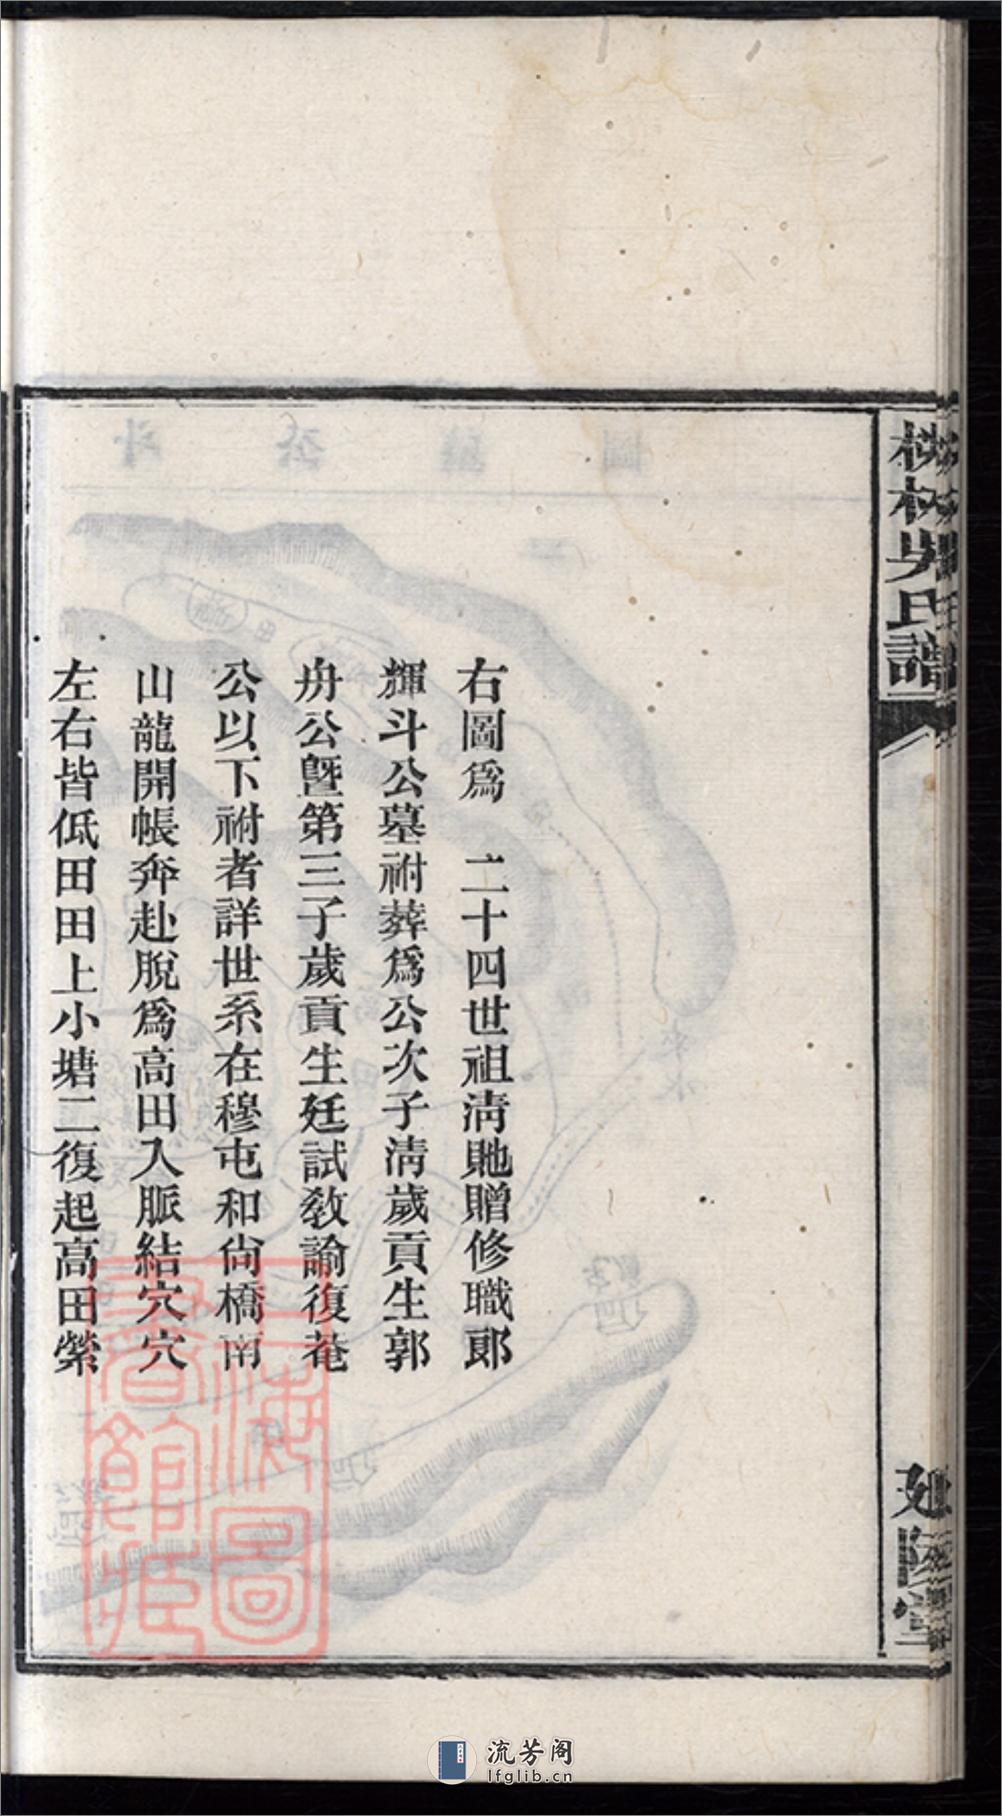 右圖爲　二十四世祖淸貤贈修職郞
輝斗公墓祔葬爲公次子淸歲貢生郭
舟公曁第三子歲貢生廷試敎諭復菴
公以下祔者詳世系在穆屯和尙橋南
山龍開帳奔赴脫爲高田入脈結穴穴
左右皆低田田上小塘二復起高田縈
吳氏譜
上海圖書館藏
流芳阁
lfglib.cn